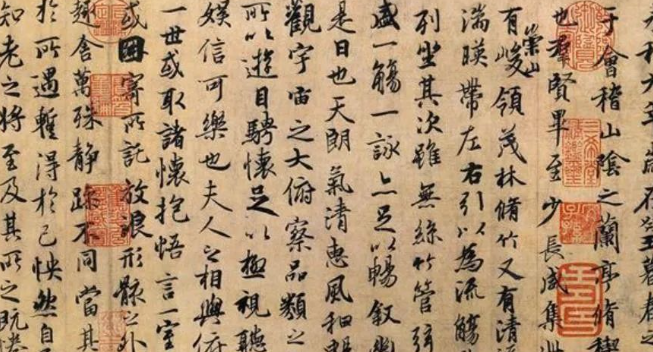 永和九年歲在癸丑暮春之
于會稽山陰之蘭亭脩稧
也羣賢畢至少長咸集此
有崇山峻領茂林脩竹又有清
湍暎帶左右引以為流觴
列坐其次雖無絲竹管弦
盛一觴一詠亦足以暢敘幽
是日也天朗氣清惠風和
觀宇宙之大俯察品類之
所以遊目騁懷足以極視聽
娛信可樂也夫人之相與俯
一世或取諸懷抱悟言一室
或因寄所託放浪形骸之外
趣舍萬殊靜躁不同當其
於所遇暫得於己怏然自
知老之將至及其所之既惓